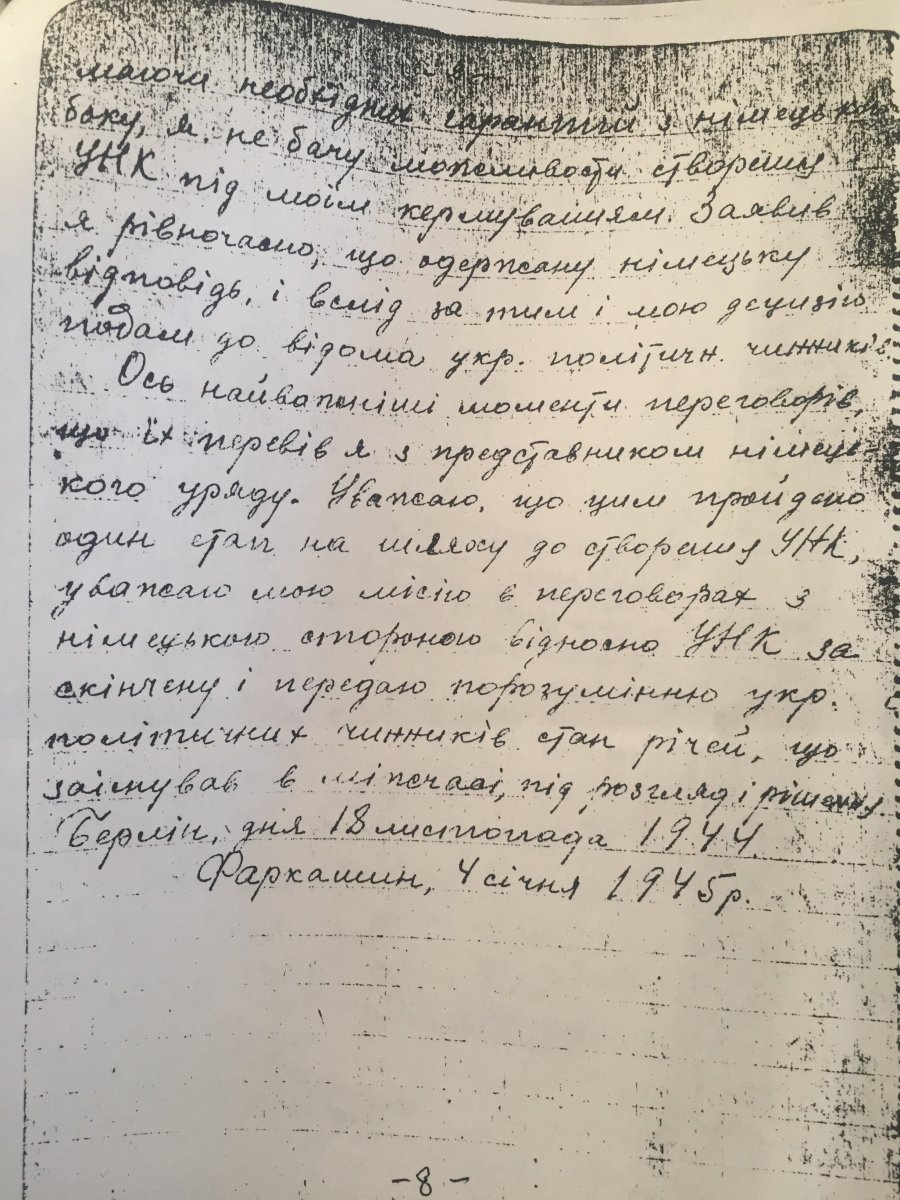 маючи необхідних гарантій з німецького
боку, я не бачу можливости створення
УНК під моїм кермуванням. Заявив
я рівночасно, що одержану німецьку
відповідь, і вслід за тим і мою децизію
подам до відома укр. політичн. чинників.
Ось найважніші моменти переговорів,
що їх перевів я з представником німець-
кого уряду. Уважаю, що цим пройдено
один етап на шляху до створення УНК,
уважаю мою місію в переговорах з
німецькою стороною відносно УНК за
скінчену і передаю порозумінню укр.
політичних чинників стан річей, що
заіснував в міжчасі, під розгляд і рішення.
Берлін, дня 18 листопада 1944.
Фаркашин, 4 січня 1945р.
-8-